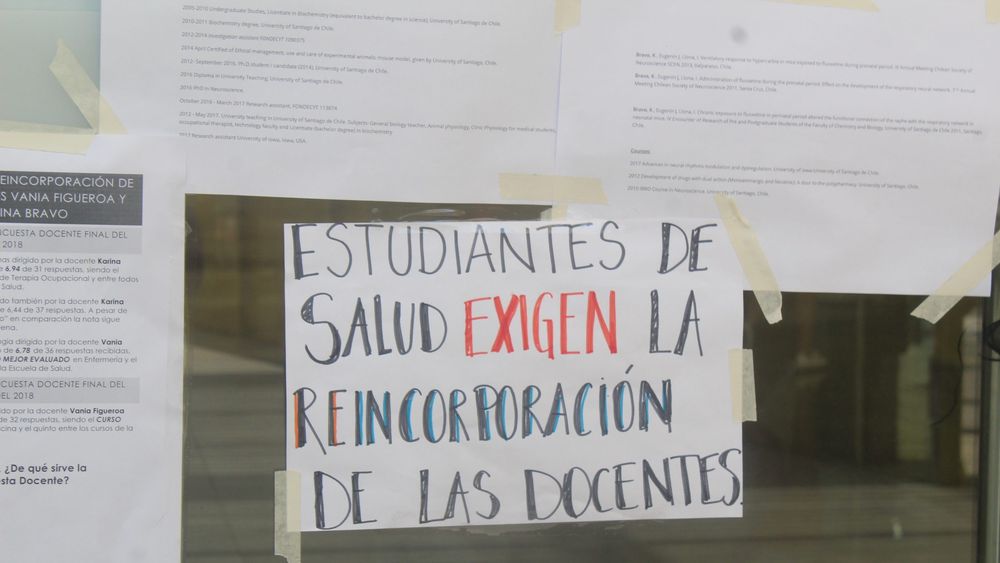 2005-2010 Undergraduate Studies, Licentiate in Biochemistry (equivalent to bachelor degree in science), University of Santiago de Chile.
2010-2011 Biochemistry degree, University of Santiago de Chile.
2012-2014 Investigation assistant FONDECYT 1090375
2014 April Certified of Ethical management, use and care of experimental animals: mouse model, given by University of Santiago, Chile.
2012- September 2016. Ph.D student / candidate (2014), University of Santiago de Chile.
2016 Diploma in University Teaching. University of Santiago de Chile.
2016 PhD in Neuroscience.
October 2016 - March 2017 Research assistant, FONDECYT
2012 - May 2017. University teaching in University of Santiago de Chile. Subjects: General biology teacher, Animal physiology, Clinic Physiology for medical students,
occupational therapist, technology faculty and Licentiate (bachelor degree) in biochemistry
2017 Research assistant University of Iowa, Iowa, USA.
Bravo, K., Eugenín J, Llona, I. Ventilatory response to hypercarbia in mice exposed to fluoxetine during prenatal period. IX Annual Meeting Chilean Society of
Neuroscience SCHN 2013, Valparaíso, Chile.
Bravo, K., Eugenín J, Llona, I. Administration of fluoxetine during the prenatal period: Effect on the development of the respiratory neural network. Annual
Meeting Chilean Society of Neuroscience 2011, Santa Cruz, Chile.
Bravo, K., Eugenín J, Llona, I. Chronic exposure to fluoxetine in perinatal period altered the functional connection of the raphe with the respiratory network in
neonatal mice. IV Encounter of Research of Pre and Postgraduate Students of the Faculty of Chemistry and Biology, University of Santiago de Chile 2011, Santiago,
Chile.
Courses
2017 Advances in neural rhythms modulation and dysregulation. University of Iowa-University of Santiago de Chile.
2012 Development of drugs with dual action A door to the polypharmacy. University of Santiago, Chile.
2010 IBRO Course in Neuroscience. University of Santiago, Chile.
EINCORPORACIÓN DE
S VANIA FIGUEROA Y
INA BRAVO
NCUESTA DOCENTE FINAL DEL
2018
nas dirigido por la docente Karina
e 6,94 de 31 respuestas, siendo el
de Terapia Ocupacional y entre todos
Salud.
do también por la docente Karina
e 6,44 de 37 respuestas. A pesar de
o" en comparación la nota sigue
ena.
ogía dirigido por la docente Vania
de 6,78 de 36 respuestas recibidas,
O MEJOR EVALUADO en Enfermería y el
la Escuela de Salud.
CUESTA DOCENTE FINAL DEL
DEL 2018
ido por la docente Vania Figueroa
de 32 respuestas, siendo el CURSO
cina y el quinto entre los cursos de la
¿De qué sirve la
sta Docente?
ESTUDIANTES DE
SALUD EXIGEN LA
REINCORPORACIÓN
DE LAS DOCENTES.